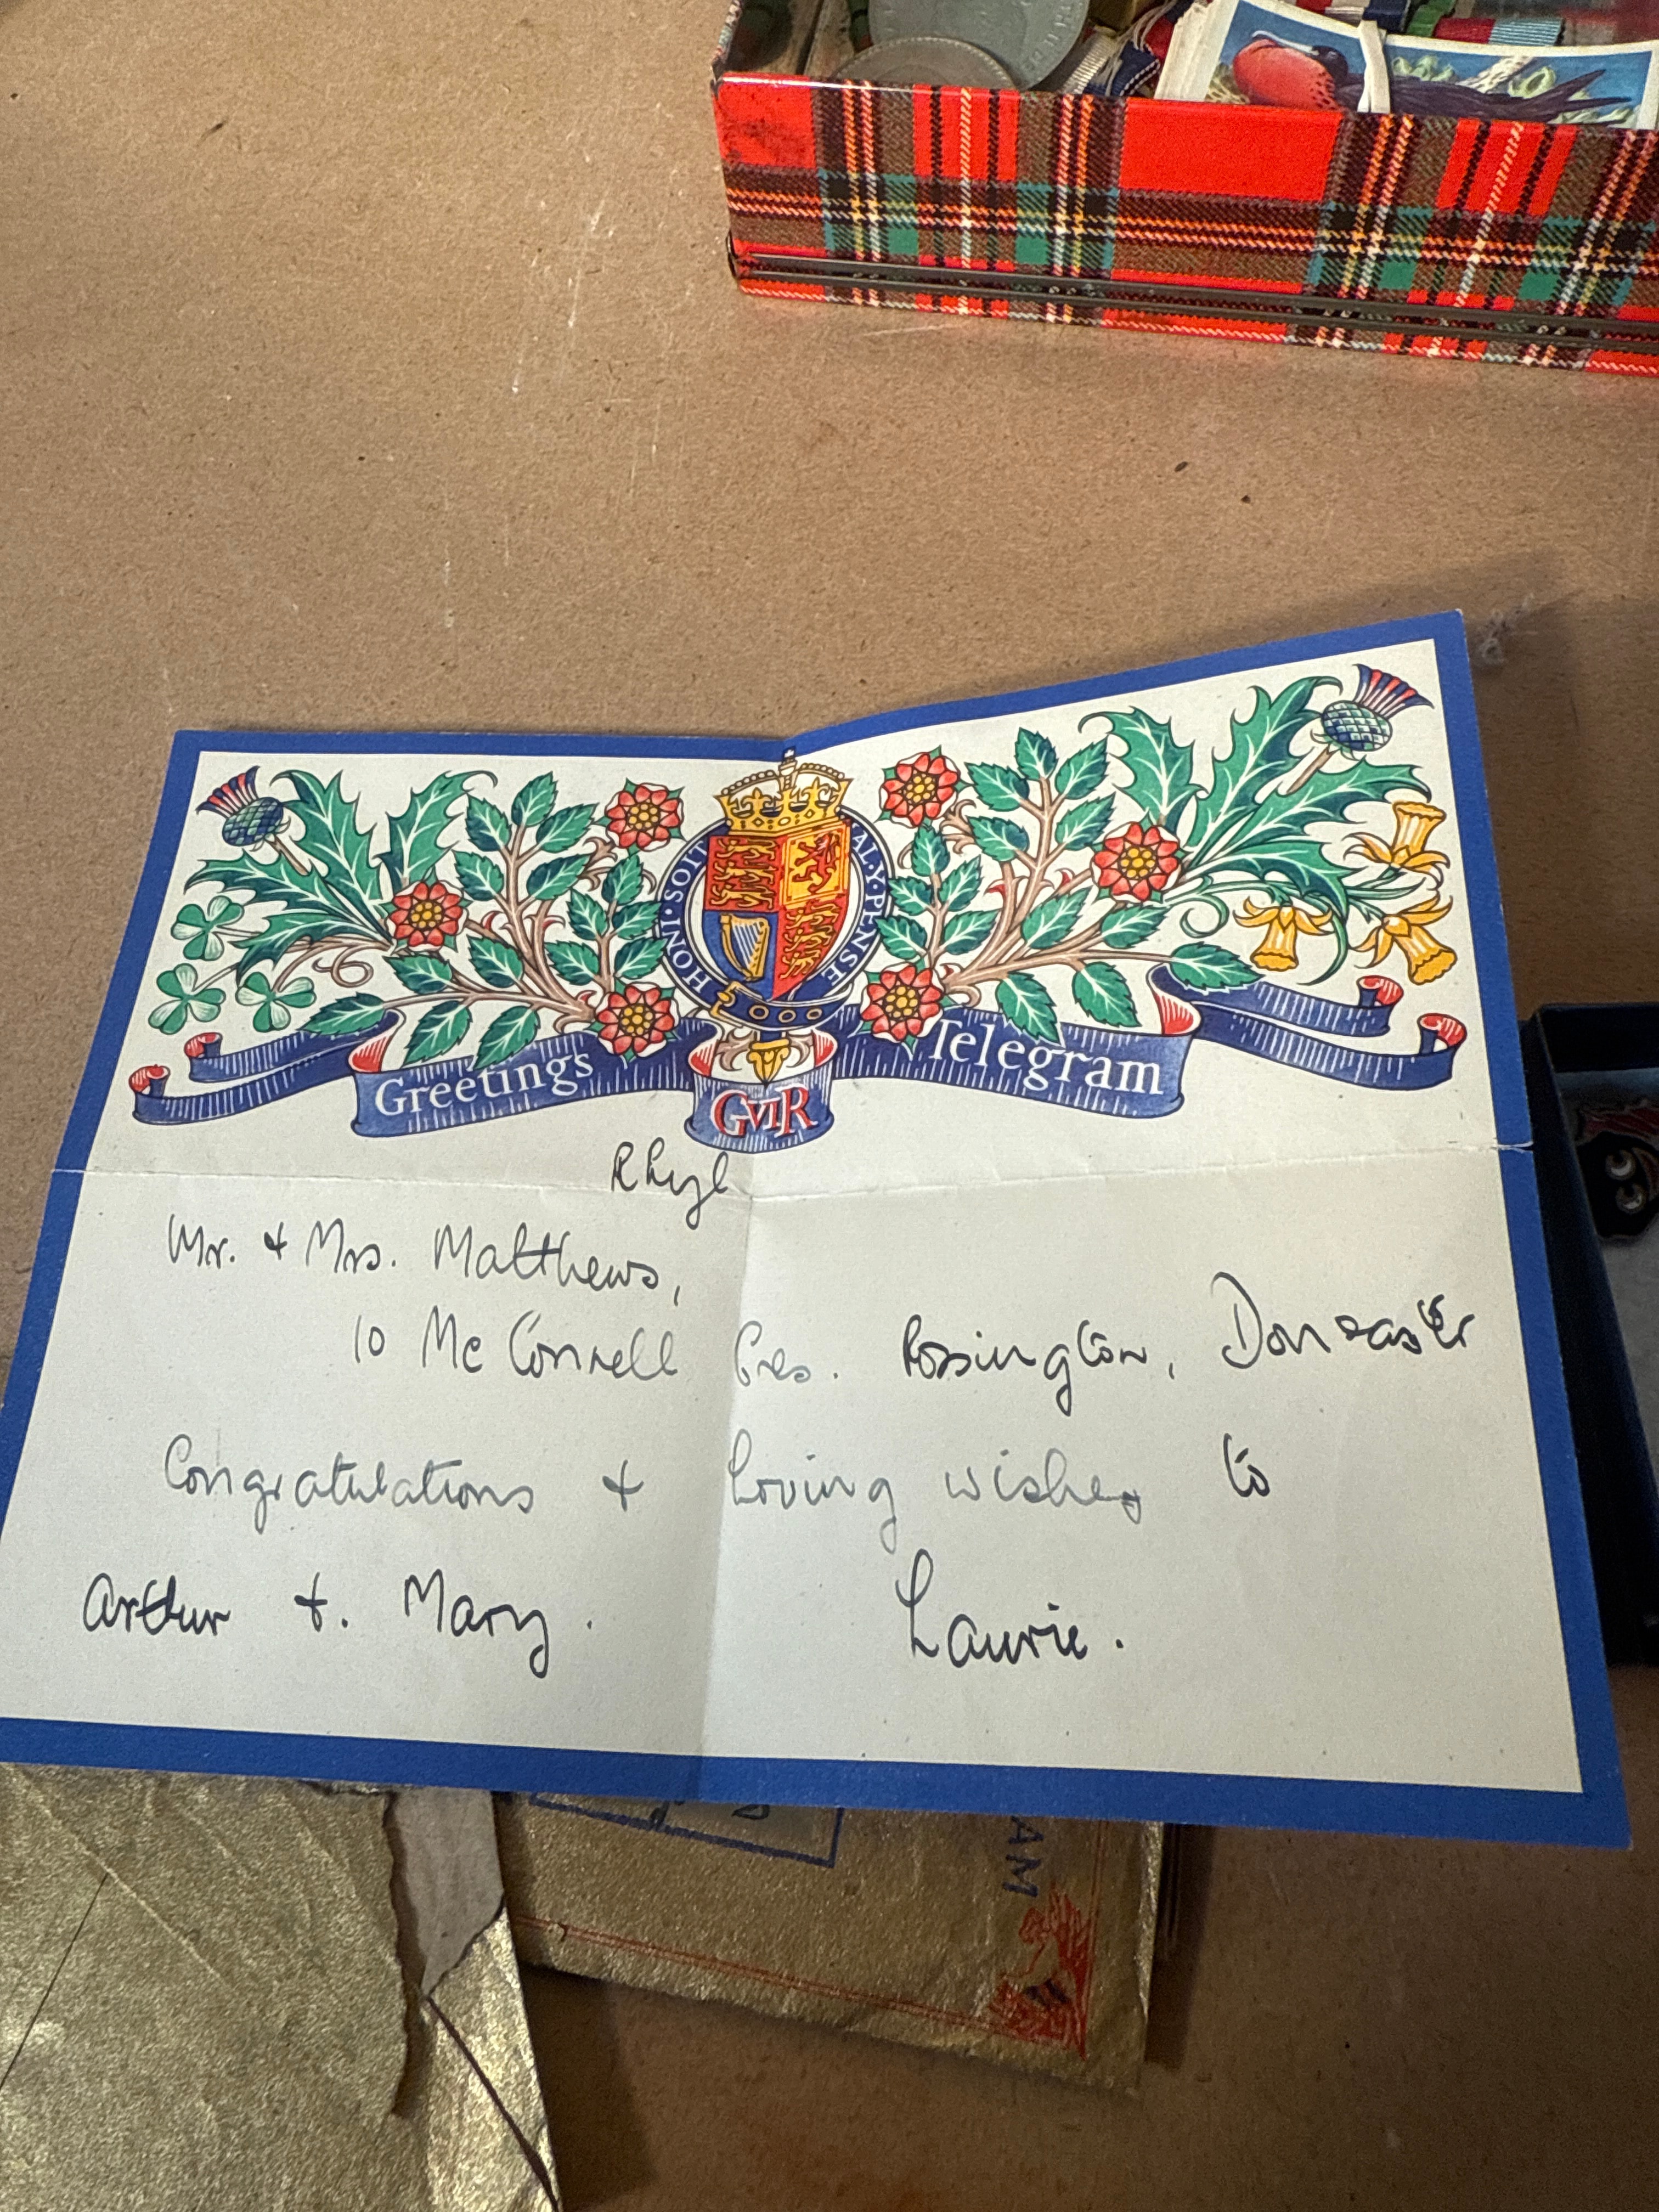 HONI · SOIT
AL · Y · PENSE
Greetings Telegram
GVIR
Rhyl
Mr. + Mrs. Matthews,
10 McConnell Cres. Rossington, Doncaster
Congratulations + Loving wishes to
Arthur +. Mary. Laurie.
AM